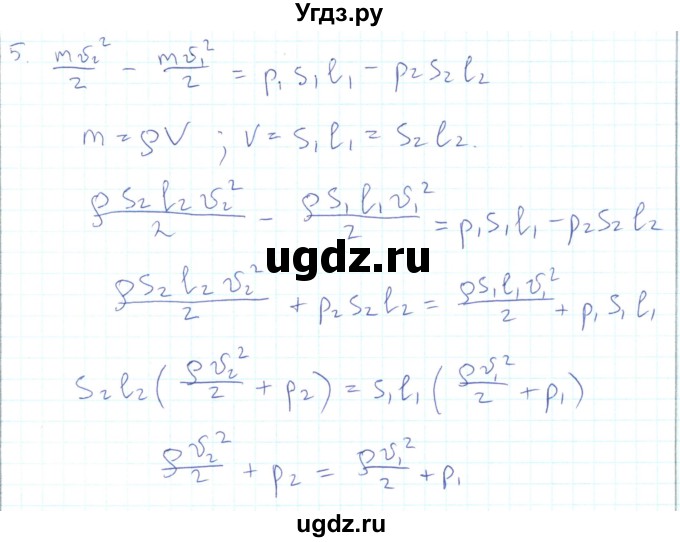 Угдз.ру
5. mv₂²/2 − mv₁²/2 = p₁ s₁ l₁ − p₂ s₂ l₂
m = ρV ; V = s₁ l₁ = s₂ l₂.
ρ s₂ l₂ v₂²/2 − ρ s₁ l₁ v₁²/2 = p₁ s₁ l₁ − p₂ s₂ l₂
ugdz.ru
ρ s₂ l₂ v₂²/2 + p₂ s₂ l₂ = ρ s₁ l₁ v₁²/2 + p₁ s₁ l₁
s₂ l₂ ( ρv₂²/2 + p₂ ) = s₁ l₁ ( ρv₁²/2 + p₁ )
ρv₂²/2 + p₂ = ρv₁²/2 + p₁
ugdz.ru